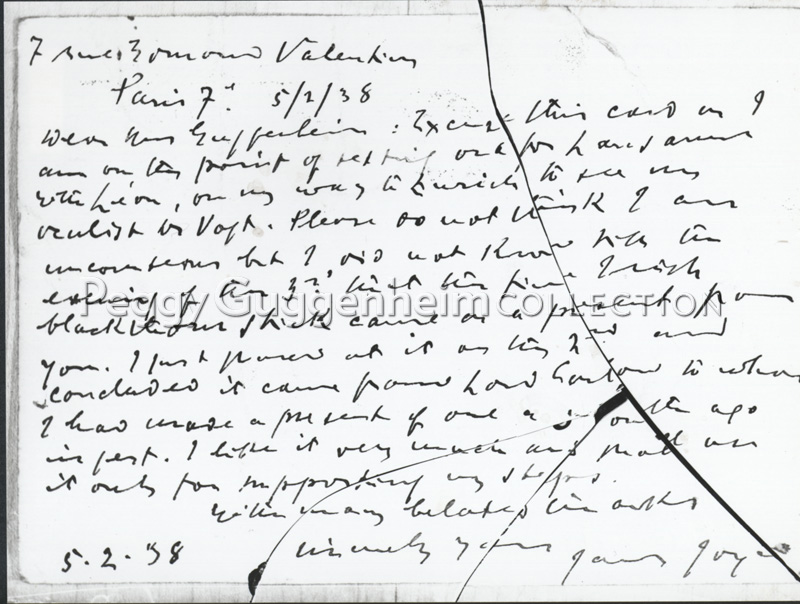 7 rue Edmond Valentin
Paris 7e. 5/2/38
Dear Mrs Guggenheim : Excuse this card as I
am on the point of setting out for Lausanne
with Léon, on my way to Zurich to see my
oculist Dr Vogt. Please do not think I am
uncourteous but I did not know till the
evening of the 3rd that the fine Irish
blackthorn stick came as a present from
you. I just found it on the 2nd and
concluded it came from Lord to whom
I had made a present of one a month ago
in jest. I like it very much and shall use
it only for supporting my steps.
With many belated thanks
sincerely yours James Joyce
5.2.'38
Peggy Guggenheim COLLECTION